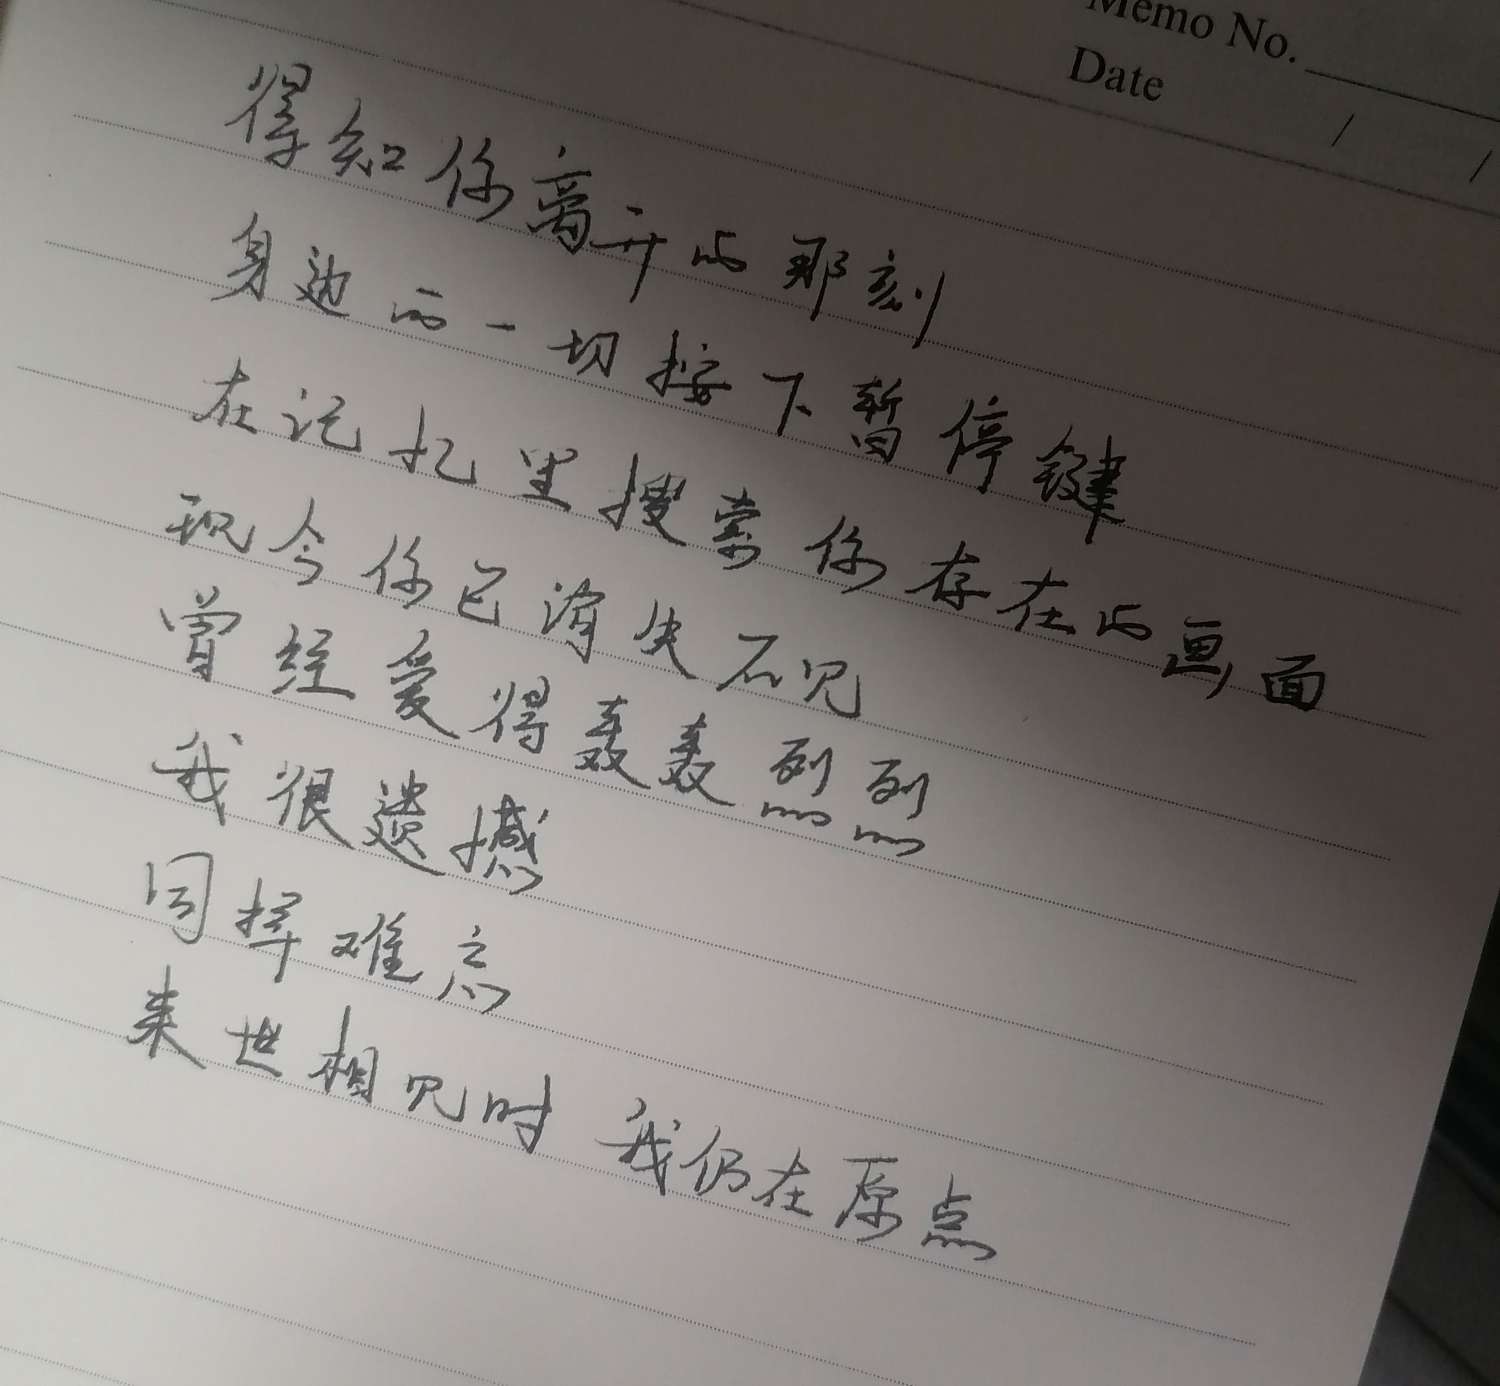 Memo No.
Date / /
得知你离开的那刻
身边的一切按下暂停键
在记忆里搜索你存在的画面
现今你已消失不见
曾经爱得轰轰烈烈
我很遗憾
同样难忘
来世相见时 我仍在原点